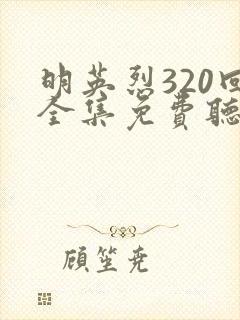 明英烈320回
全集免費聽
顧笙尭